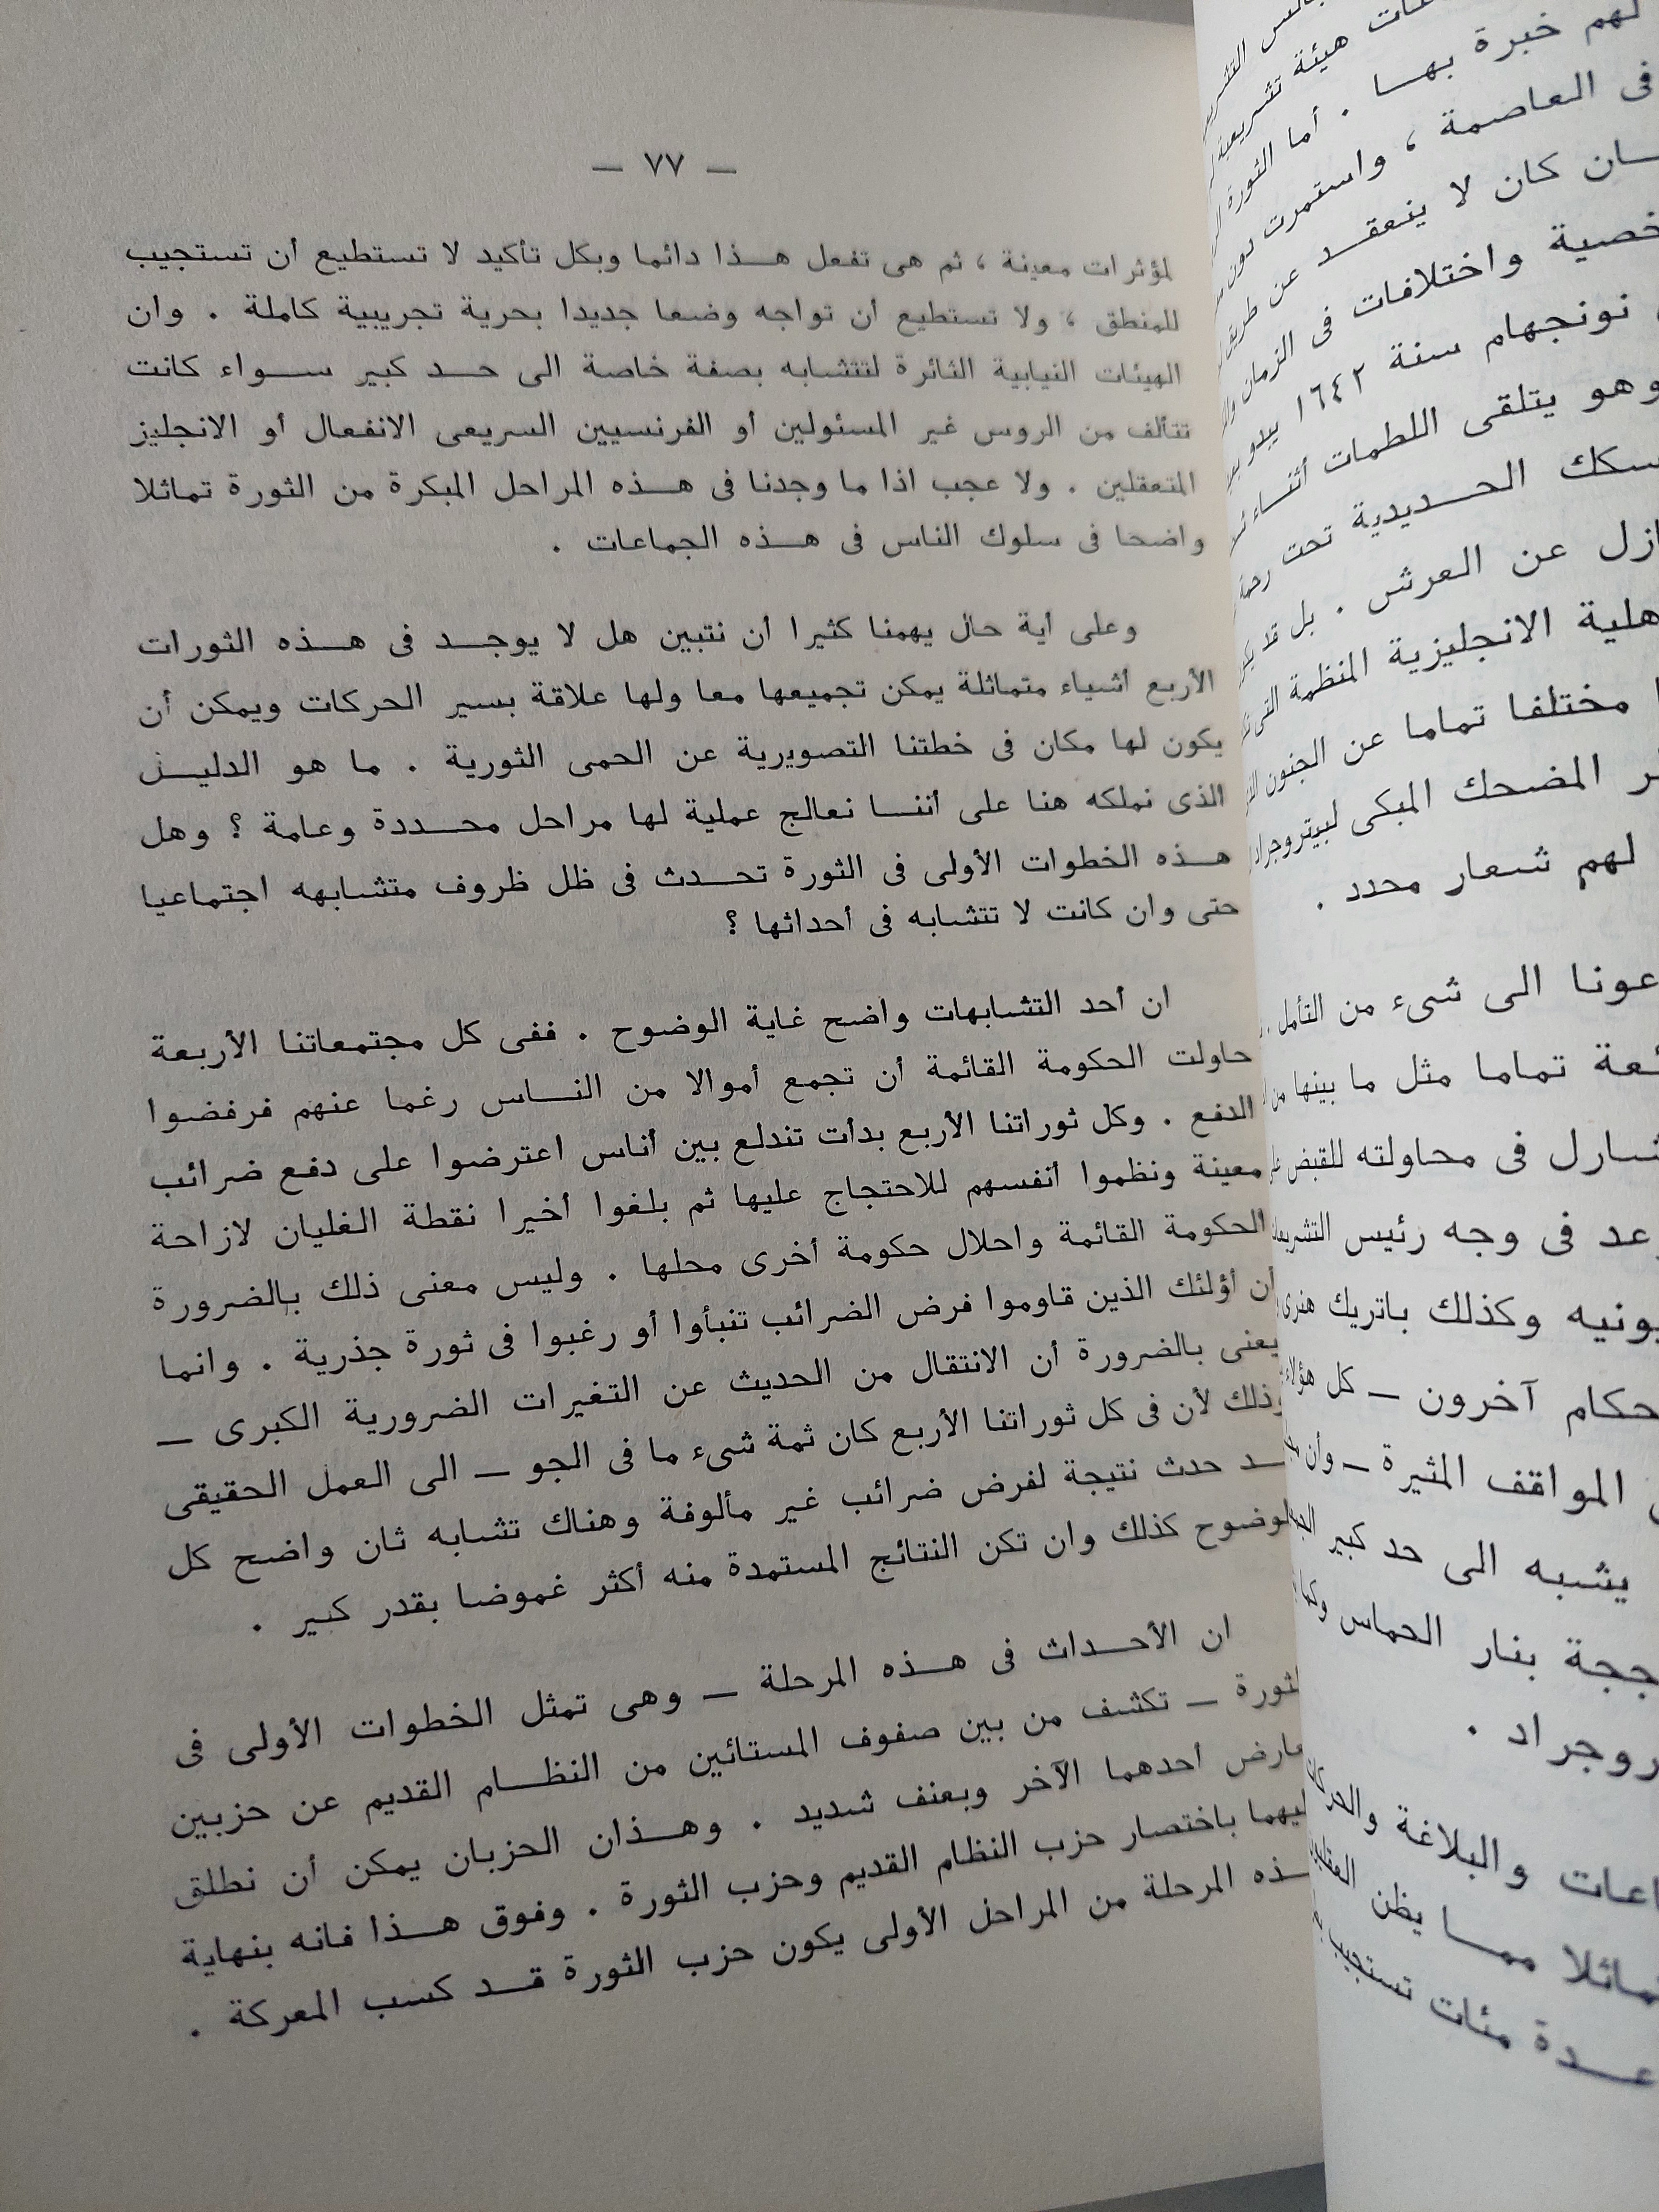 — ٧٧ —
لمؤثرات معينة ، ثم هى تفعل هـــذا دائما وبكل تأكيد لا تستطيع أن تستجيب
للمنطق ، ولا تستطيع أن تواجه وضعا جديدا بحرية تجريبية كاملة . وان
الهيئات النيابية الثائرة لتتشابه بصفة خاصة الى حــد كبير ســـواء كانت
تتألف من الروس غير المسئولين أو الفرنسيين السريعى الانفعال أو الانجليز
المتعقلين . ولا عجب اذا ما وجدنا فى هـــذه المراحل المبكرة من الثورة تماثلا
واضحا فى سلوك الناس فى هـــذه الجماعات .
وعلى أية حال يهمنا كثيرا أن نتبين هل لا يوجــد فى هـــذه الثورات
الأربع أشياء متماثلة يمكن تجميعها معا ولها علاقة بسير الحركات ويمكن أن
يكون لها مكان فى خطتنا التصويرية عن الحمى الثورية . ما هو الدليــل
الذى نملكه هنا على أننــا نعالج عملية لها مراحل محــددة وعامة ؟ وهل
هـــذه الخطوات الأولى فى الثورة تحــدث فى ظل ظروف متشابهه اجتماعيا
حتى وان كانت لا تتشابه فى أحداثها ؟
ان أحد التشابهات واضح غاية الوضوح . ففى كل مجتمعاتنا الأربعة
حاولت الحكومة القائمة أن تجمع أموالا من النــاس رغما عنهم فرفضوا
الدفع . وكل ثوراتنا الأربع بدأت تندلع بين أناس اعترضوا على دفع ضرائب
معينة ونظموا أنفسهم للاحتجاج عليها ثم بلغوا أخيرا نقطة الغليان لازاحة
الحكومة القائمة واحلال حكومة أخرى محلها . وليس معنى ذلك بالضرورة
أن أؤلئك الذين قاوموا فرض الضرائب تنبأوا أو رغبوا فى ثورة جذرية . وانما
يعنى بالضرورة أن الانتقال من الحديث عن التغيرات الضرورية الكبرى —
وذلك لأن فى كل ثوراتنا الأربع كان ثمة شىء ما فى الجو — الى العمل الحقيقى
حدث نتيجة لفرض ضرائب غير مألوفة وهناك تشابه ثان واضح كل
الوضوح كذلك وان تكن النتائج المستمدة منه أكثر غموضا بقدر كبير .
ان الأحــداث فى هـــذه المرحلة — وهى تمثل الخطوات الأولى فى
الثورة — تكشف من بين صفوف المستائين من النظــام القديم عن حزبين
أحدهما الآخر وبعنف شديد . وهــذان الحزبان يمكن أن نطلق
باختصار حزب النظام القديم وحزب الثورة . وفوق هـــذا فانه بنهاية
المرحلة من المراحل الأولى يكون حزب الثورة قــد كسب المعركة .
هيئة تشريعية
لهم خبرة بهــا . أما الثورة
فى العاصمة ، واستمرت دون
كان لا ينعقــد عن طريق
واختلافات فى الزمان
نونجهام سنة ١٦٤٢ يبدو
وهو يتلقى اللطمات أثنــاء
الحــديدية تحت رحمة
عن العرش . بل قد
الانجليزية المنظمة التى
مختلفا تماما عن الجنون
المضحك المبكى لبيتروجراد
لهم شعار محدد .
الى شىء من التأمل .
تماما مثل ما بينها من
فى محاولته للقبض
فى وجه رئيس
وكذلك باتريك هنرى
آخرون — كل هؤلاء
المواقف المثيرة — وأن
يشبه الى حد كبير
بنار الحماس
والبلاغة
ممــا يظن
مئات تستجيب